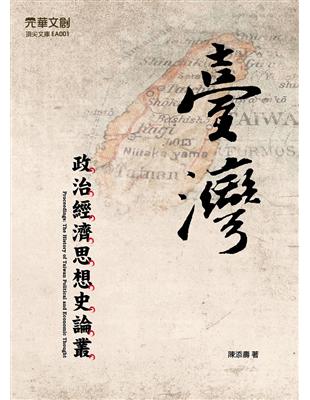 元華文創
頂尖文庫 EA001
臺灣
政治經濟思想史論叢
Proceedings: The History of Taiwan Political and Economic Thought
陳添壽 著
TAIWAN
FORMOSA
Niitaka yama